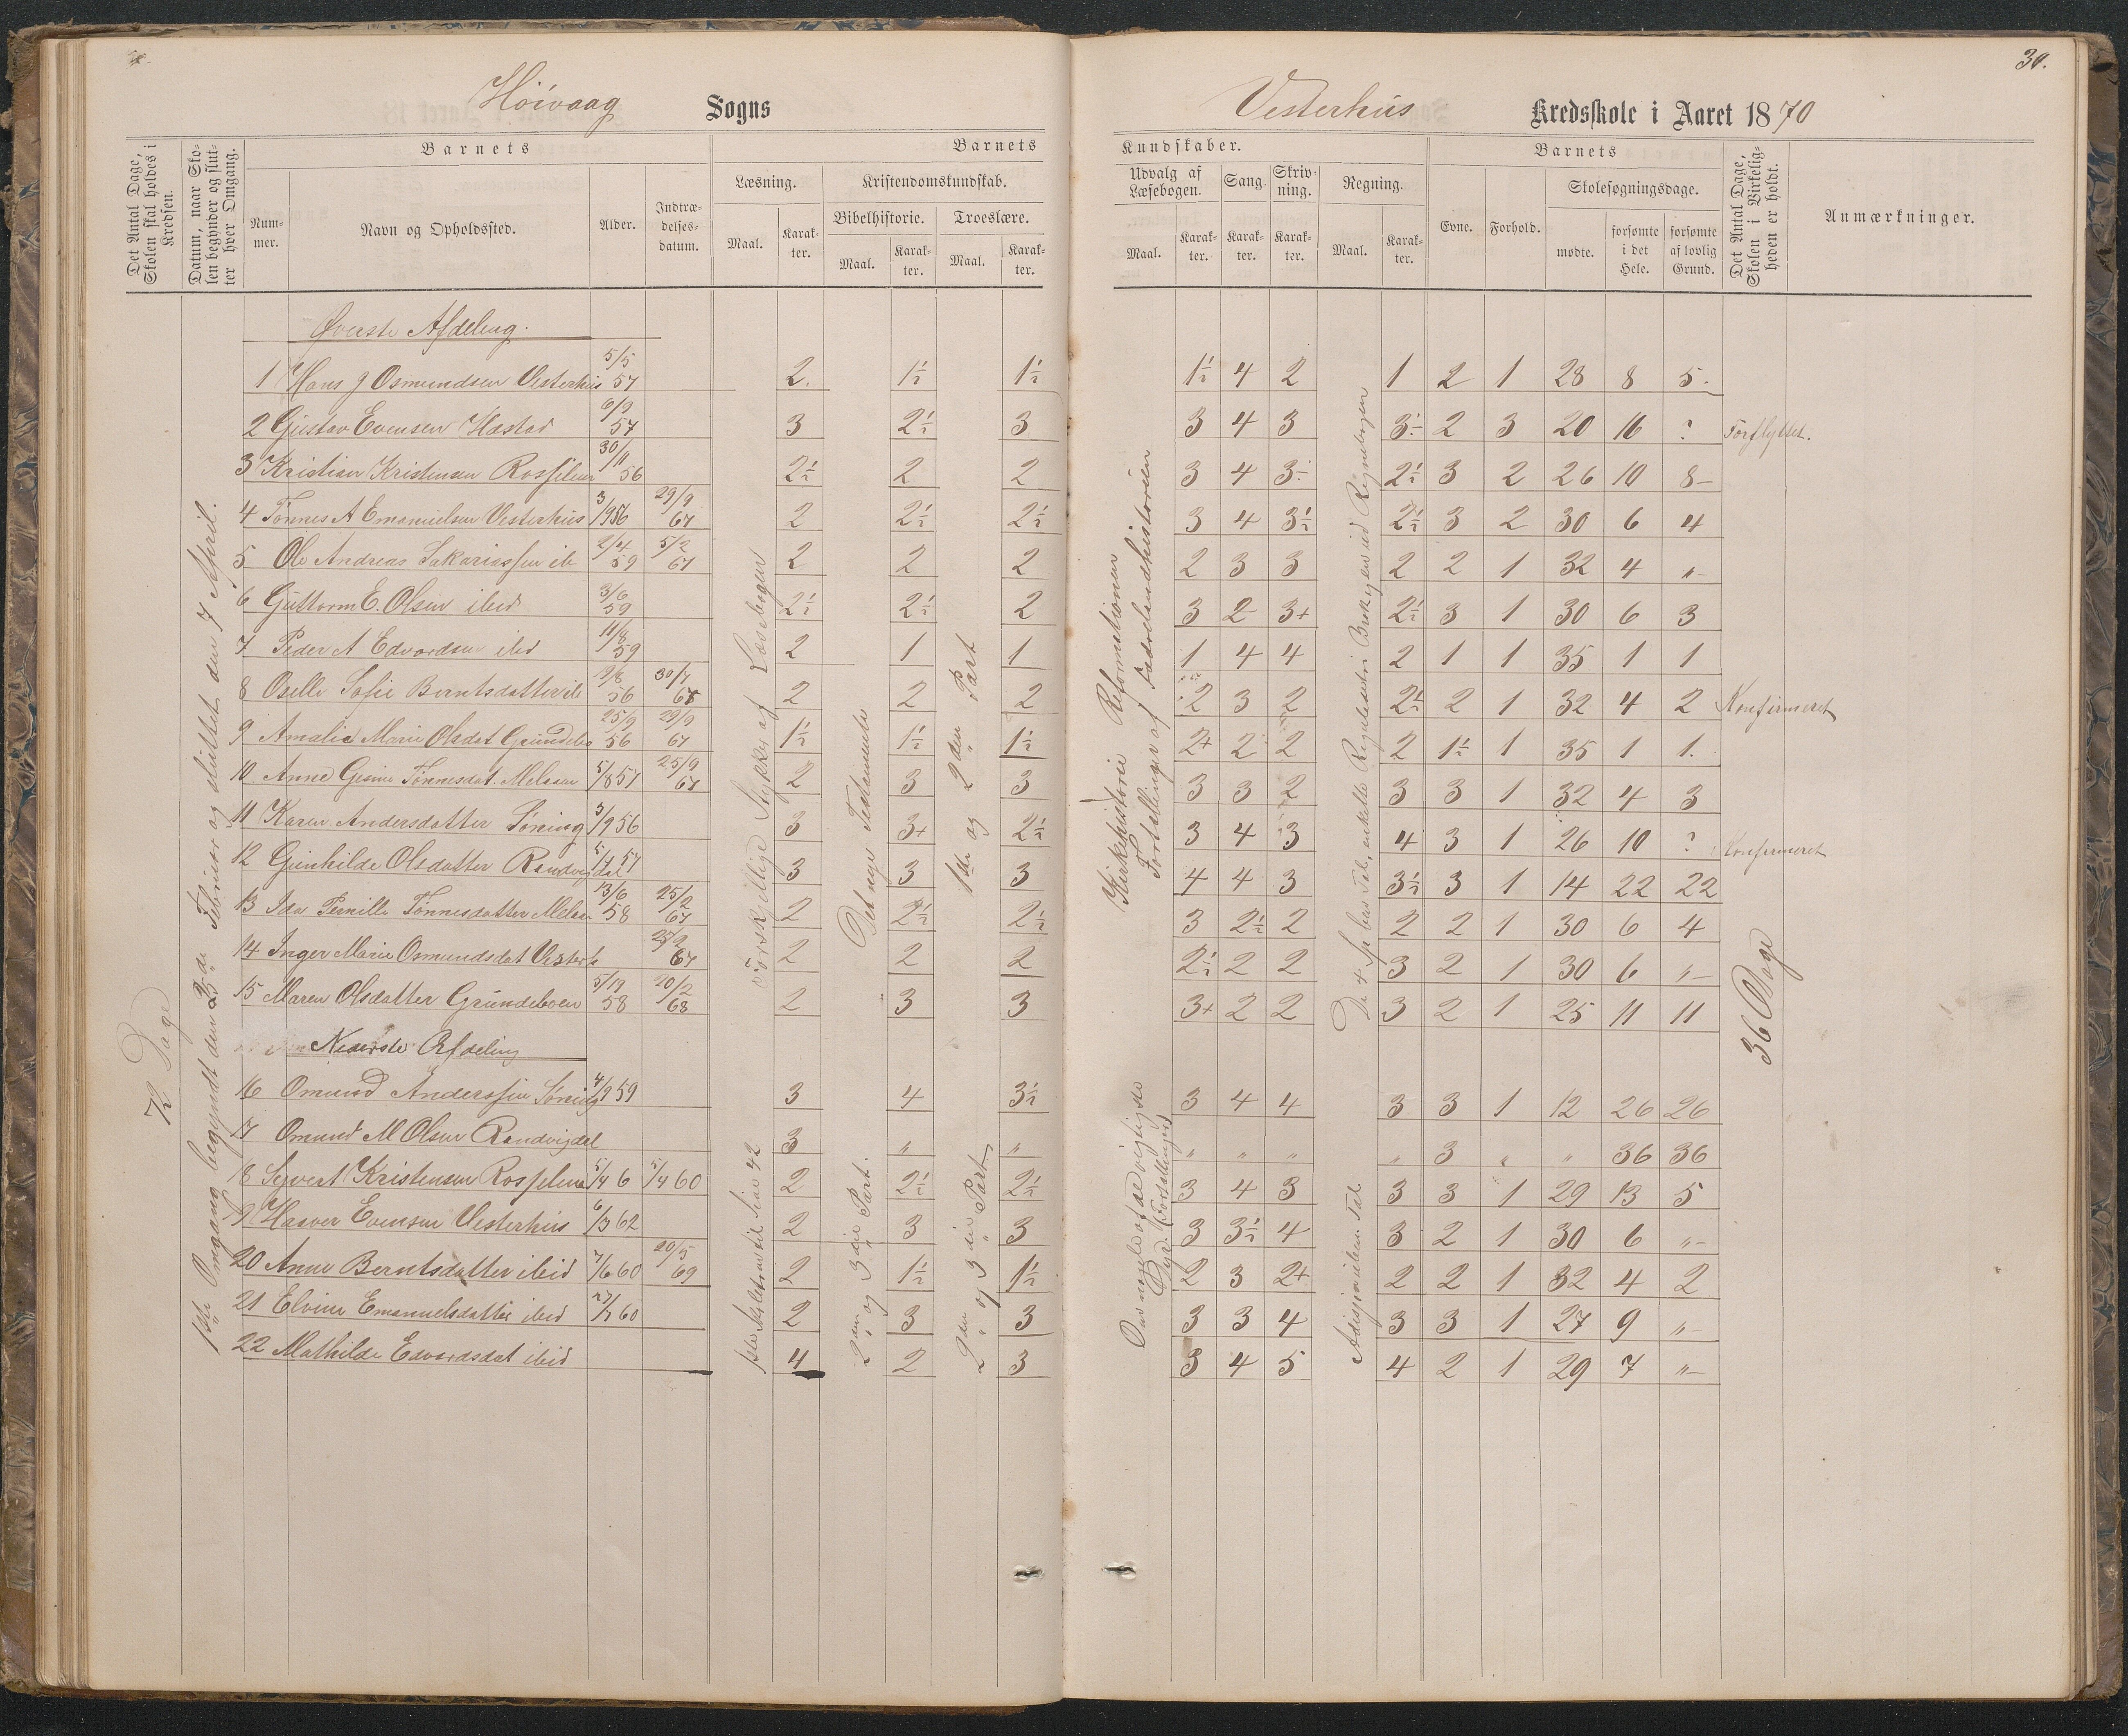 30.
Höivaag Sogns
Vesterhus Kredsskole i Aaret 1870
Det Antal Dage, Skolen skal holdes i Kredsen.
Datum, naar Skolen begynder og slutter hver Omgang.
Barnets
Nummer.
Navn og Opholdssted.
Alder.
Indtrædelsesdatum.
Barnets
Læsning.
Maal.
Karakter.
Kristendomskundskab.
Bibelhistorie.
Maal.
Karakter.
Troeslære.
Maal.
Karakter.
Kundskaber.
Udvalg af Læsebogen.
Maal.
Karakter.
Sang.
Karakter.
Skrivning.
Karakter.
Regning.
Maal.
Karakter.
Barnets
Evne.
Forhold.
Skolesøgningsdage.
mødte.
forsømte i det Hele.
forsømte af lovlig Grund.
Det Antal Dage, Skolen i Virkeligheden er holdt.
Anmærkninger.
72 Dage
1ste Omgang begyndt den 23de Februar og sluttet den 7 April.
Øverste Afdeling.
1 Hans J Osmundsen Vesterhus 5/5 57 2. 1½ 1½ 1½ 4 2 1 2 1 28 8 5.
2 Gustav Evensen Hæstad 6/9 57 3 2½ 3 3 4 3 3÷ 2 3 20 16 ? Forflyttet.
3 Kristian Kristensen Rosselien 30/11 56 2½ 2 2 3 4 3÷ 2½ 3 2 26 10 8
4 Tønnes A Emanuelsen Vesterhus 3/9 56 29/9 67 2 2½ 2½ 3 4 3½ 2½ 3 2 30 6 4
5 Ole Andreas Sakariassen ib 2/4 59 5/2 67 2 2 2 2 3 3 2 2 1 32 4 „
6 Guttorm E. Olsen ibid 3/6 59 2½ 2½ 2 3 2 3+ 2½ 3 1 30 6 3
7 Peder A Edvardsen ibid 11/8 59 2 1 1 1 4 4 2 1 1 35 1 1
8 Oselle Sofie Berntsdatter ib 9/8 56 30/7 67 2 2 2 2 3 2 2½ 2 1 32 4 2 Konfirmeret
9 Amalie Marie Olsdat Grundebo 25/9 56 29/9 67 1½ 1½ 1½ 2+ 2 2 2 1½ 1 35 1 1.
10 Anne Gesine Tønnesdat. Melaaen 5/8 57 25/9 67 2 3 3 3 3 2 3 3 1 32 4 3
11 Karen Andersdatter Søning 3/9 56 3 3+ 2½ 3 4 3 4 3 1 26 10 ? Konfirmeret
12 Gunhilde Olsdatter Randvigdal 5/4 57 3 3 3 4 4 3 3½ 3 1 14 22 22
13 Ida Pernille Tønnesdatter Melaa 13/6 58 25/2 67 2 2½ 2½ 3 2½ 2 2 2 1 30 6 4
14 Inger Marie Osmundsdat Vesterh 25/2 67 2 2 2 2½ 2 2 3 2 1 30 6 „
15 Maren Olsdatter Grundeboen 5/19 58 20/2 68 2 3 3 3+ 2 2 3 2 1 25 11 11
forskjellige Stykker af Læsebogen
Det nye Testamente
1ste og 2den Part
Kirkehistorie Reformationen
Fortællinger af Fædrelandshistorien
36 Dage
Nederste Afdeling
16 Omund Anderssen Søning 4/9 59 3 4 3½ 3 4 4 3 3 1 12 26 26
17 Omund M Olsen Randvigdal 3 „ „ „ „ „ „ 3 „ „ 36 36
18 Syvert Kristensen Rosselien 5/4 6 5/4 60 2 2½ 2½ 3 4 3 3 3 1 29 13 5
19 Haaver Evensen Vesterhus 6/3 62 2 3 3 3 3½ 4 3 2 1 30 6 „
20 Anne Berntsdatter ibid 7/6 60 20/5 69 2 1½ 1½ 2 3 2+ 2 2 1 32 4 2
21 Elvine Emanuelsdatter ibid 27/7 60 2 3 3 3 3 4 3 3 1 27 9 „
22 Mathilde Edvardsdat ibid 4 2 3 3 4 5 4 2 1 29 7 „
til Side 42
2den og 3die Part.
2den og 3die Part